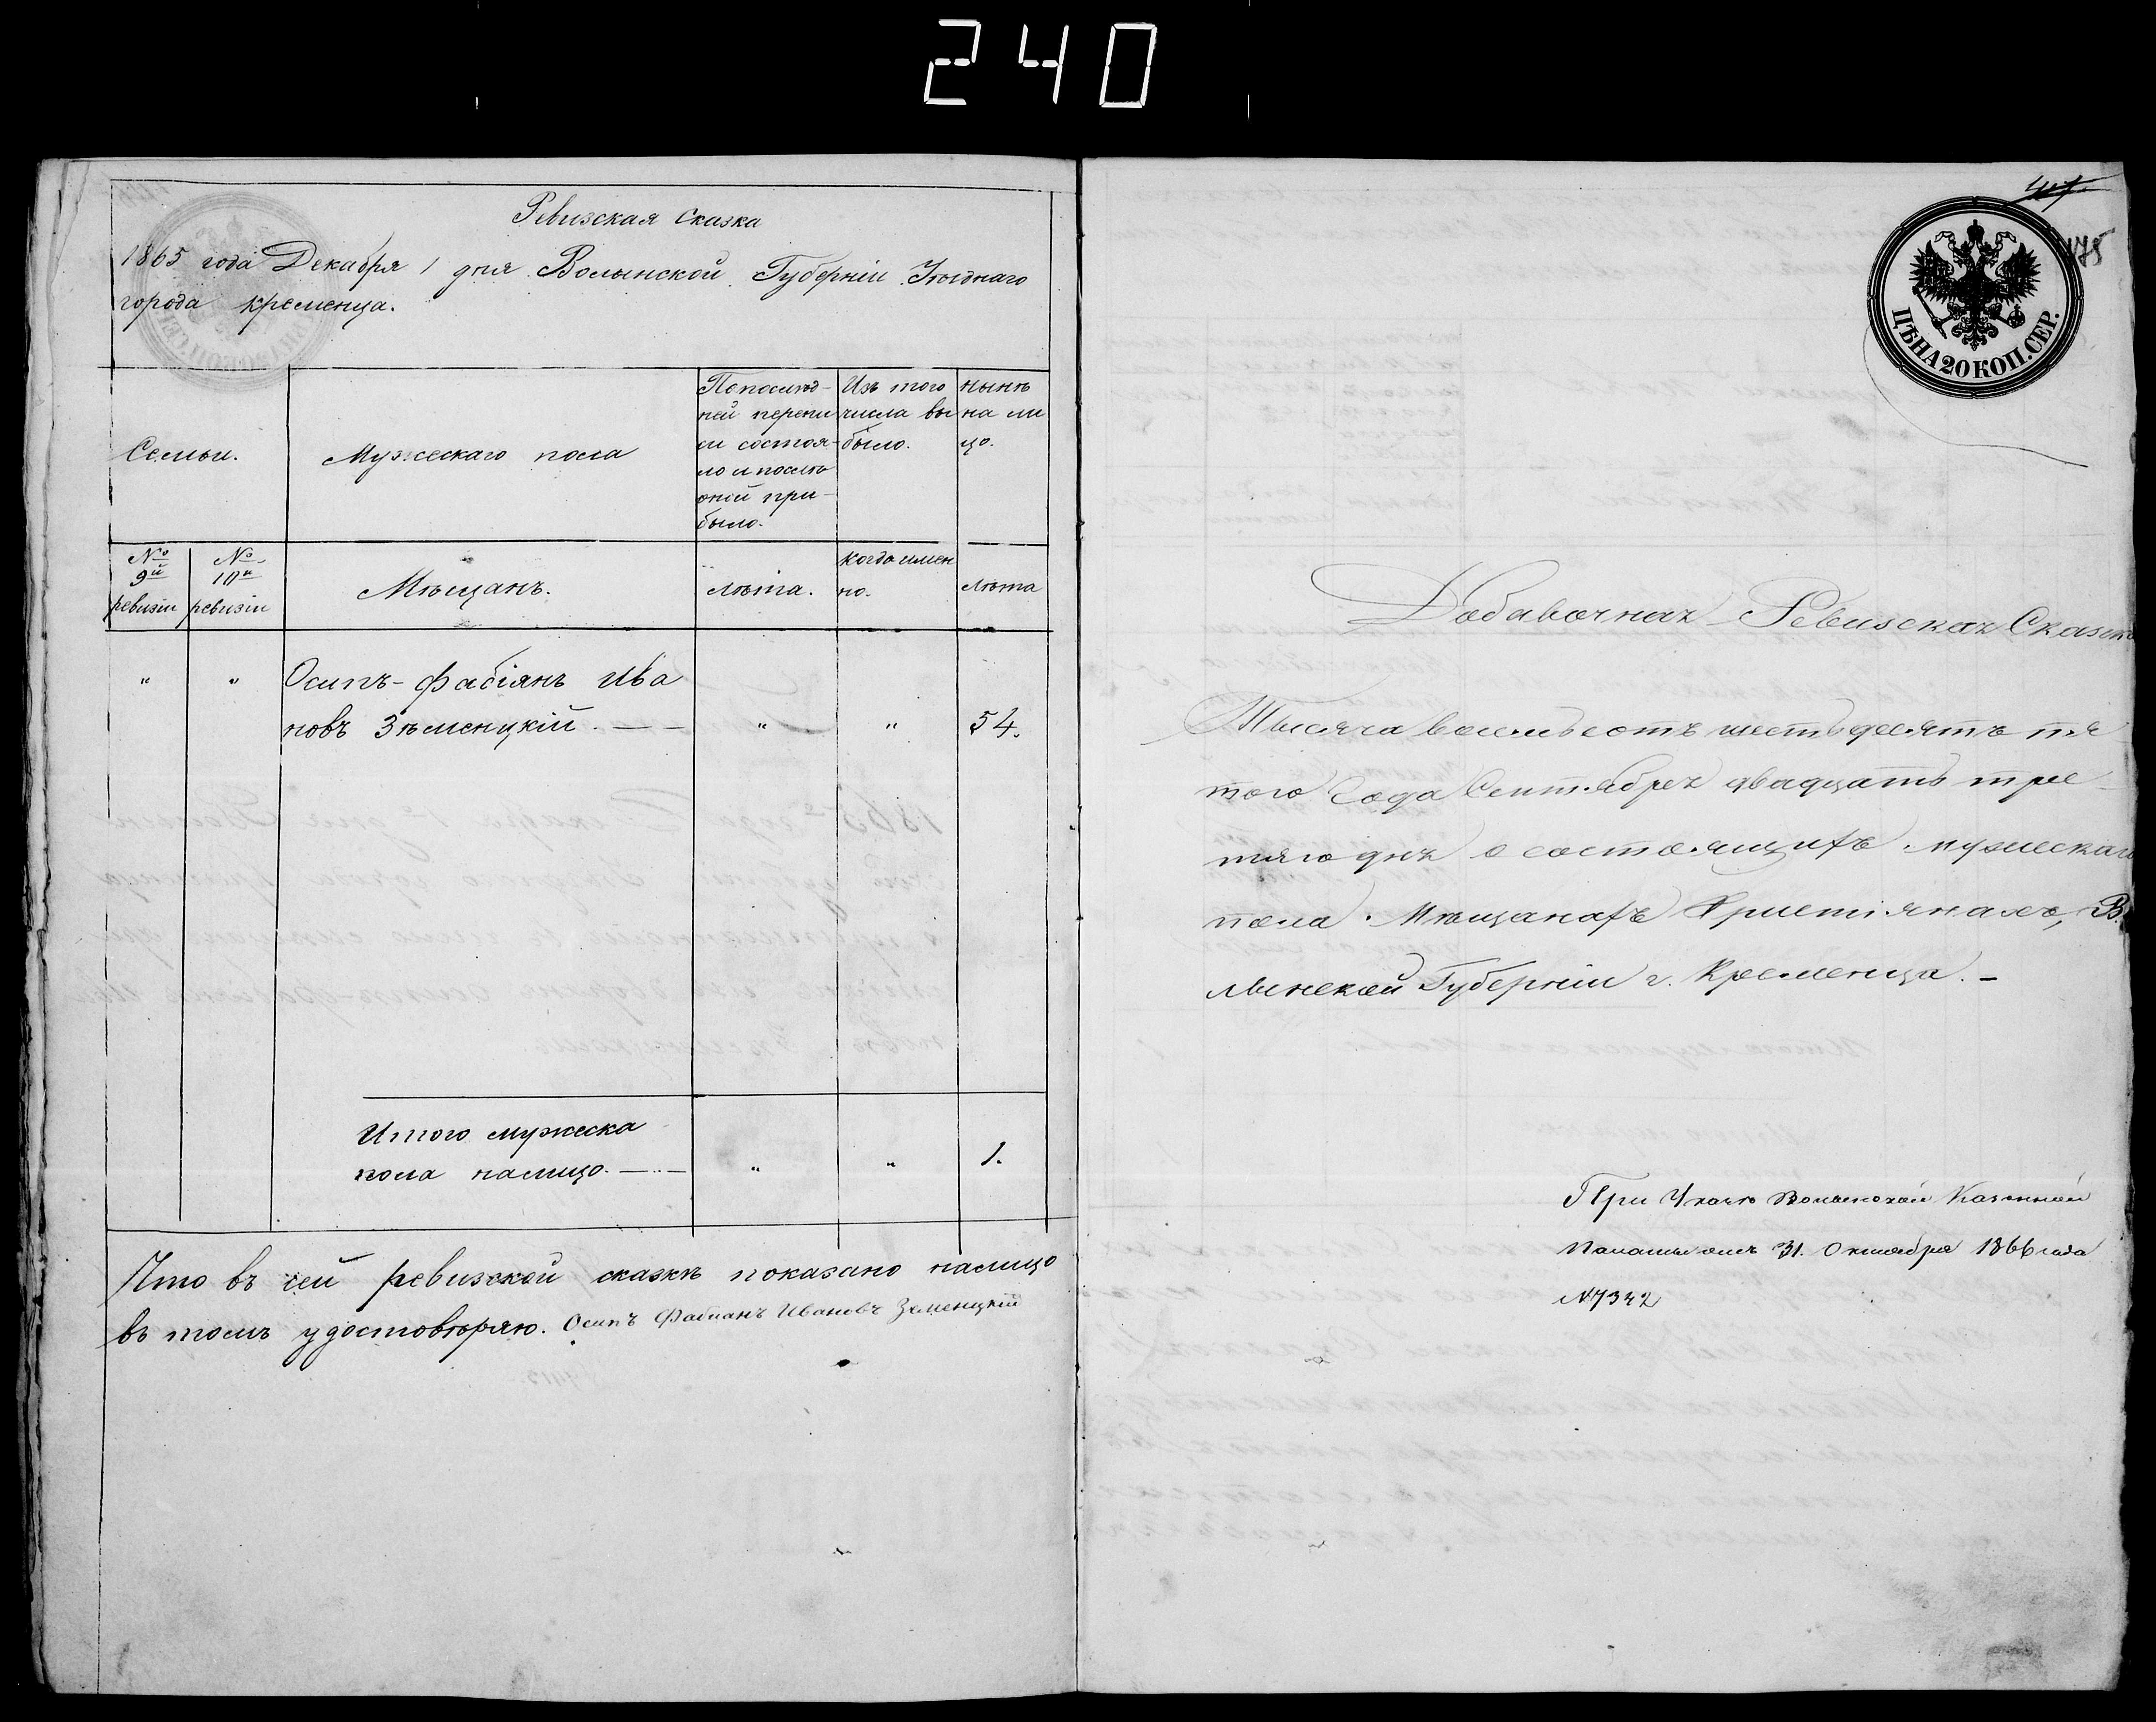 240
Ревизская Сказка
1865 года Декабря 1 дня Волынской Губерніи Уѣзднаго
города Кременца.
Семьи.
Мужескаго пола
По послѣд-
ней перепи
си состоя-
ло и послѣ
оной при-
было.
Изъ того
числа вы
было.
Нынѣ
на ли
цо.
№ 9й ревизіи
№ 10й ревизіи
Мѣщанъ.
лѣта.
когда имен
но.
лѣта
" " Осипъ-Фабіянъ Ива
новъ Зѣменцкій. — — " " 54.
Итого мужеска
пола налицо. — " " 1.
Что въ сей ревизской сказкѣ показано налицо
въ томъ удостовѣряю. Осипъ Фабианъ Ивановъ Земенцкій
175
ЦѢНА 20 КОП. СЕР.
Добавочная Ревизская Сказка
Тысяча восемьсотъ шестьдесятъ пя
того Года Сентября двадцать тре-
тяго дня о состоящихъ мужескаго
пола Мѣщанахъ Христіянахъ, В
лынской Губерніи г. Кременца. -
При Указѣ Волынской Казенной
Палаты отъ 31. Октября 1866 года
№7342